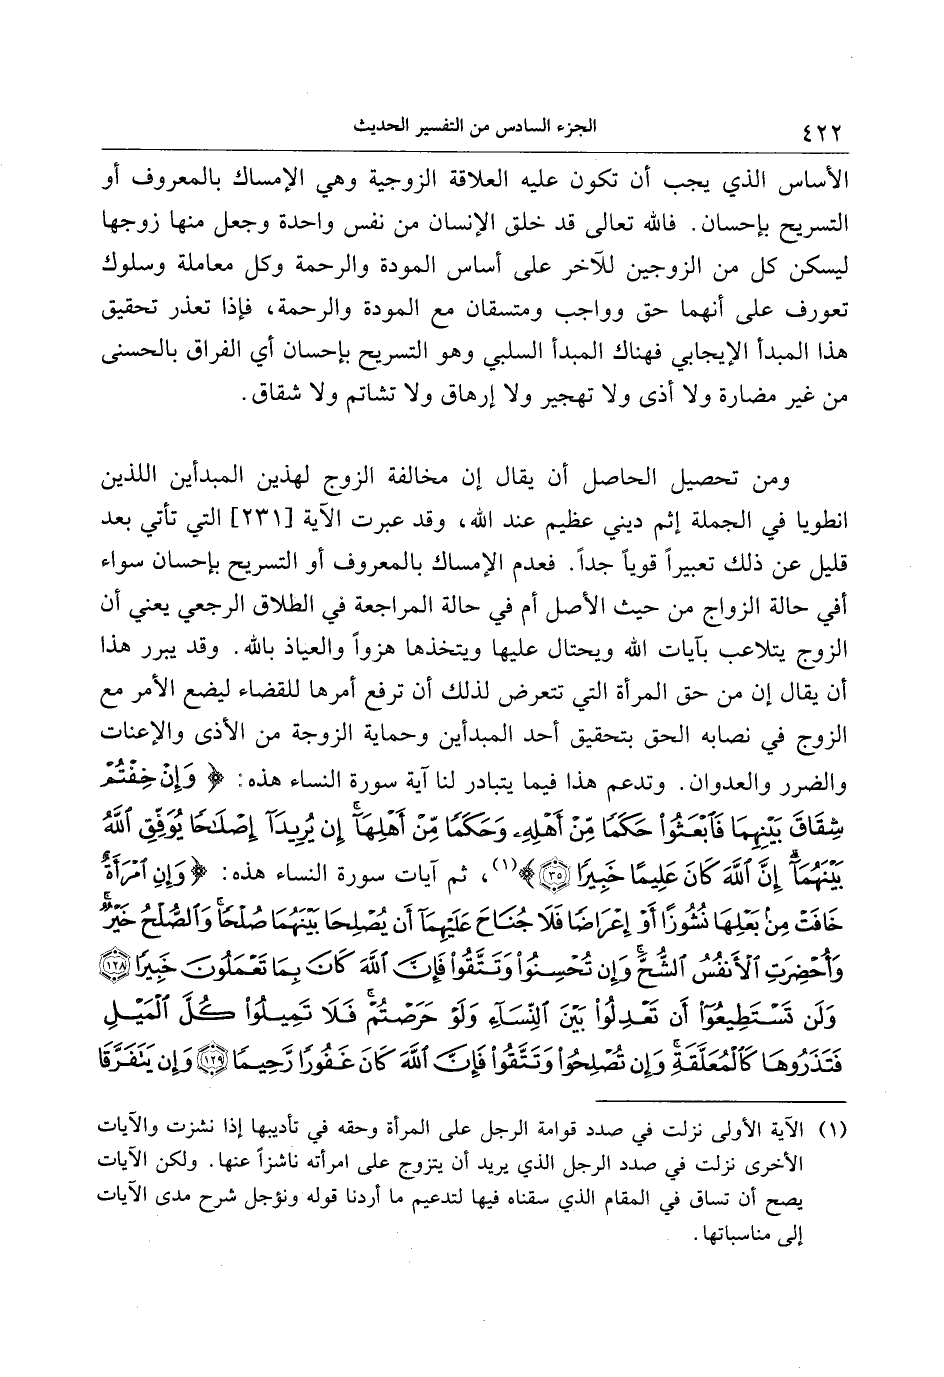 ٤٢٢
الجزء السادس من التفسير الحديث
الأساس الذي يجب أن تكون عليه العلاقة الزوجية وهي الإمساك بالمعروف أو
التسريح بإحسان. فالله تعالى قد خلق الإنسان من نفس واحدة وجعل منها زوجها
ليسكن كل من الزوجين للآخر على أساس المودة والرحمة وكل معاملة وسلوك
تعورف على أنهما حق وواجب ومتسقان مع المودة والرحمة، فإذا تعذر تحقيق
هذا المبدأ الإيجابي فهناك المبدأ السلبي وهو التسريح بإحسان أي الفراق بالحسنى
من غير مضارة ولا أذى ولا تهجير ولا إرهاق ولا تشاتم ولا شقاق.
ومن تحصيل الحاصل أن يقال إن مخالفة الزوج لهذين المبدأين اللذين
انطويا في الجملة إثم ديني عظيم عند الله، وقد عبرت الآية [٢٣١] التي تأتي بعد
قليل عن ذلك تعبيراً قوياً جداً. فعدم الإمساك بالمعروف أو التسريح بإحسان سواء
أفي حالة الزواج من حيث الأصل أم في حالة المراجعة في الطلاق الرجعي يعني أن
الزوج يتلاعب بآيات الله ويحتال عليها ويتخذها هزواً والعياذ بالله. وقد يبرر هذا
أن يقال إن من حق المرأة التي تتعرض لذلك أن ترفع أمرها للقضاء ليضع الأمر مع
الزوج في نصابه الحق بتحقيق أحد المبدأين وحماية الزوجة من الأذى والإعنات
والضرر والعدوان. وتدعم هذا فيما يتبادر لنا آية سورة النساء هذه: ﴿ وَإِنْ خِفْتُمْ
شِقَاقَ بَيْنِهِمَا فَٱبْعَثُوا۟ حَكَمًا مِّنْ أَهْلِهِۦ وَحَكَمًا مِّنْ أَهْلِهَآ ۚ إِن يُرِيدَآ إِصْلَٰحًا يُوَفِّقِ ٱللَّهُ
بَيْنَهُمَآ ۗ إِنَّ ٱللَّهَ كَانَ عَلِيمًا خَبِيرًا ﴿٣٥﴾ ﴾(١)، ثم آيات سورة النساء هذه: ﴿ وَإِنِ ٱمْرَأَةٌ
خَافَتْ مِنۢ بَعْلِهَا نُشُوزًا أَوْ إِعْرَاضًا فَلَا جُنَاحَ عَلَيْهِمَآ أَن يُصْلِحَا بَيْنَهُمَا صُلْحًا ۚ وَٱلصُّلْحُ خَيْرٌ ۗ
وَأُحْضِرَتِ ٱلْأَنفُسُ ٱلشُّحَّ ۚ وَإِن تُحْسِنُوا۟ وَتَتَّقُوا۟ فَإِنَّ ٱللَّهَ كَانَ بِمَا تَعْمَلُونَ خَبِيرًا ﴿١٢٨﴾
وَلَن تَسْتَطِيعُوٓا۟ أَن تَعْدِلُوا۟ بَيْنَ ٱلنِّسَآءِ وَلَوْ حَرَصْتُمْ ۖ فَلَا تَمِيلُوا۟ كُلَّ ٱلْمَيْلِ
فَتَذَرُوهَا كَٱلْمُعَلَّقَةِ ۚ وَإِن تُصْلِحُوا۟ وَتَتَّقُوا۟ فَإِنَّ ٱللَّهَ كَانَ غَفُورًا رَّحِيمًا ﴿١٢٩﴾ وَإِن يَتَفَرَّقَا
(١) الآية الأولى نزلت في صدد قوامة الرجل على المرأة وحقه في تأديبها إذا نشزت والآيات
الأخرى نزلت في صدد الرجل الذي يريد أن يتزوج على امرأته ناشزاً عنها. ولكن الآيات
يصح أن تساق في المقام الذي سقناه فيها لتدعيم ما أردنا قوله ونؤجل شرح مدى الآيات
إلى مناسباتها.